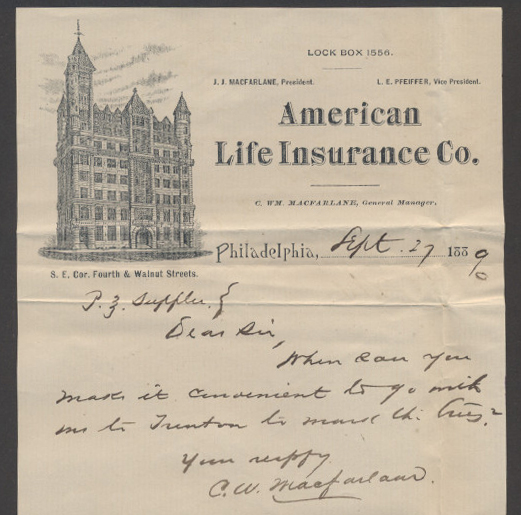 LOCK BOX 1556.
J. J. MACFARLANE, President. L. E. PFEIFFER, Vice President.
American
Life Insurance Co.
C. WM. MACFARLANE, General Manager,
Philadelphia, Sept. 27 1889
S. E. Cor. Fourth & Walnut Streets.
P. Z. Supplee {
Dear Sir,
When can you
make it convenient to go with
me to Trenton to mark the trees?
Yours
C. W. Macfarlane.